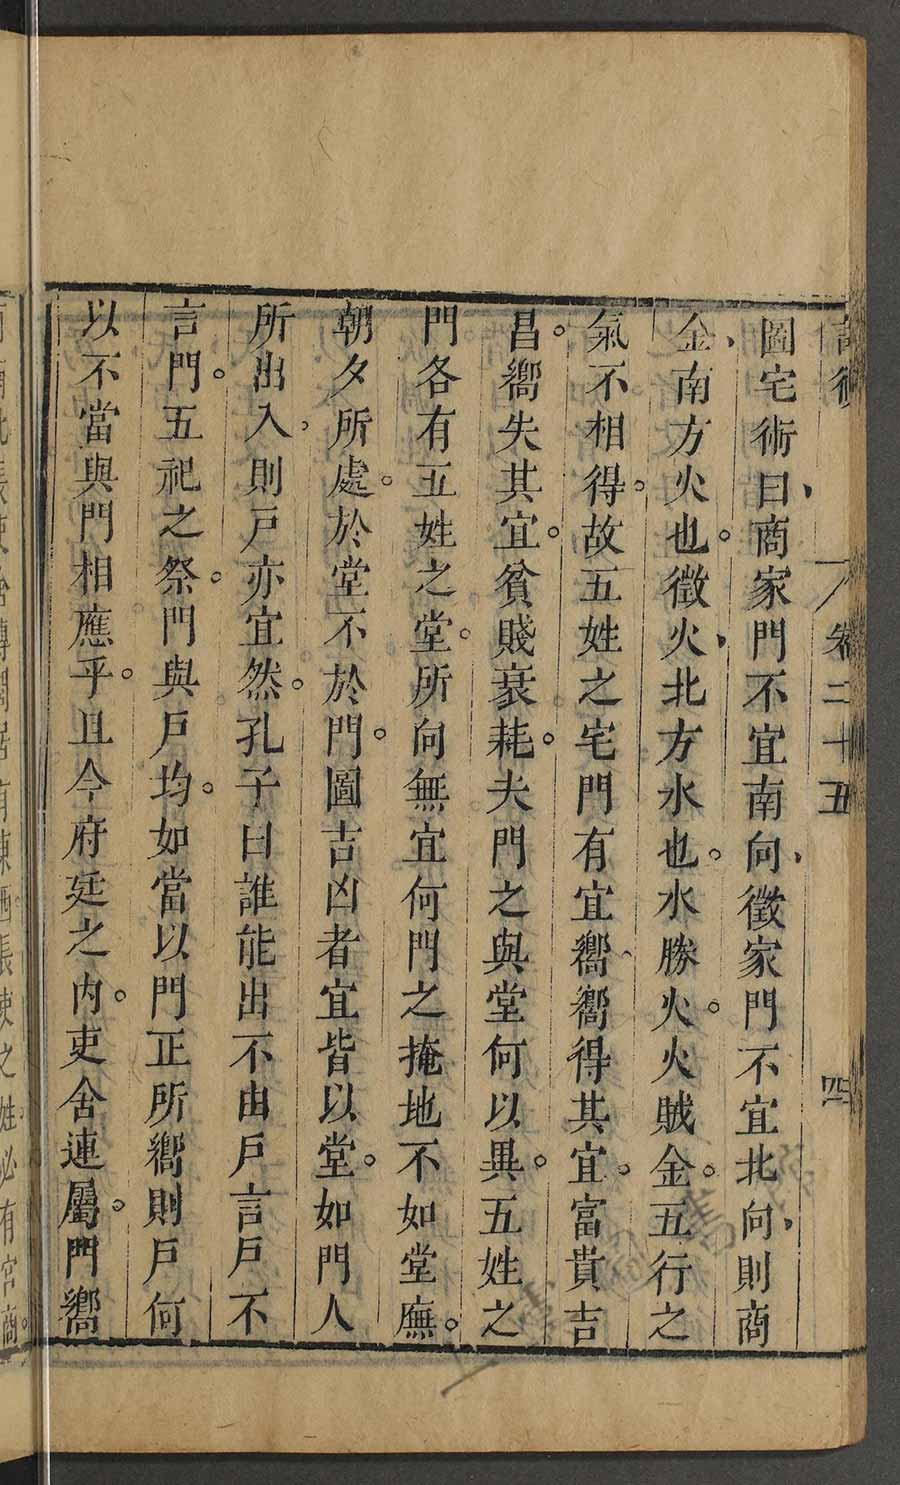 卷二十五 四
圖宅術曰商家門不宜南向徵家門不宜北向則商
金南方火也徵火北方水也水勝火火賊金五行之
氣不相得故五姓之宅門有宜嚮嚮得其宜富貴吉
昌嚮失其宜貧賤衰耗夫門之與堂何以異五姓之
門各有五姓之堂所向無宜何門之掩地不如堂廡
朝夕所處於堂不於門圖吉凶者宜皆以堂如門人
所出入則戶亦宜然孔子曰誰能出不由戶言戶不
言門五祀之祭門與戶均如當以門正所嚮則戶何
以不當與門相應乎且今府廷之內吏舍連屬門嚮
之姓必有宮商